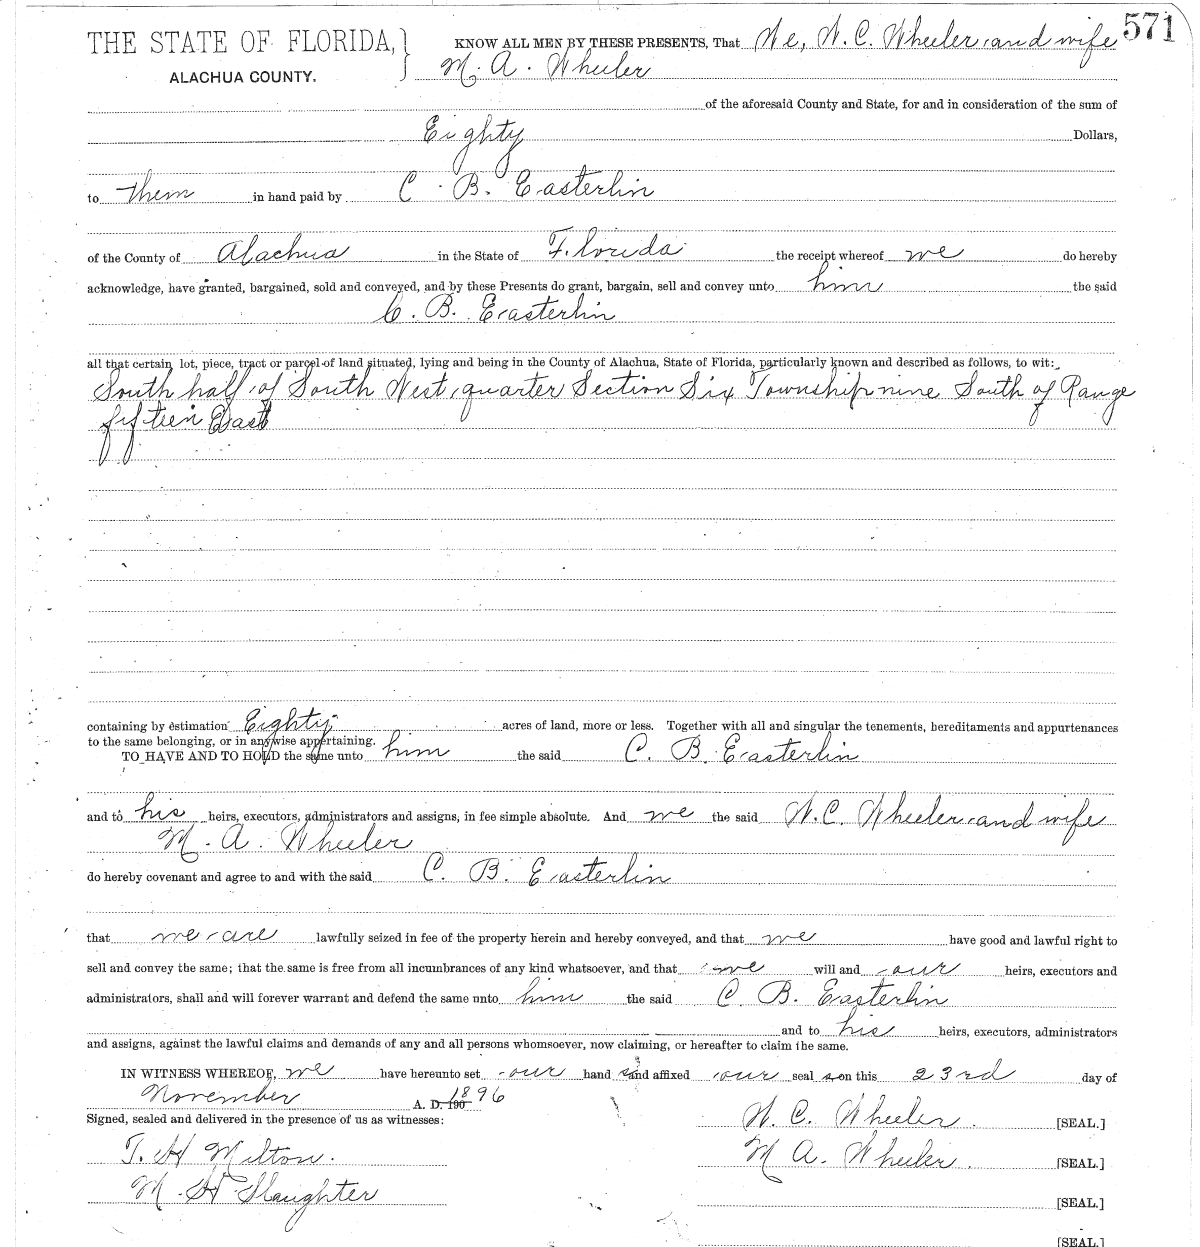 571
THE STATE OF FLORIDA, } KNOW ALL MEN BY THESE PRESENTS, That We, W. C. Wheeler and wife
ALACHUA COUNTY. M. A. Wheeler
of the aforesaid County and State, for and in consideration of the sum of
Eighty Dollars,
to them in hand paid by C. B. Easterlin
of the County of Alachua in the State of Florida the receipt whereof we do hereby
acknowledge, have granted, bargained, sold and conveyed, and by these Presents do grant, bargain, sell and convey unto him the said
C. B. Easterlin
all that certain lot, piece, tract or parcel of land situated, lying and being in the County of Alachua, State of Florida, particularly known and described as follows, to wit:
South half of South West quarter Section Six Township nine South of Range
fifteen East
containing by estimation Eighty acres of land, more or less. Together with all and singular the tenements, hereditaments and appurtenances
to the same belonging, or in anywise appertaining.
TO HAVE AND TO HOLD the same unto him the said C. B. Easterlin
and to his heirs, executors, administrators and assigns, in fee simple absolute. And we the said W. C. Wheeler and wife
M. A. Wheeler
do hereby covenant and agree to and with the said C. B. Easterlin
that we are lawfully seized in fee of the property herein and hereby conveyed, and that we have good and lawful right to
sell and convey the same; that the same is free from all incumbrances of any kind whatsoever, and that we will and our heirs, executors and
administrators, shall and will forever warrant and defend the same unto him the said C. B. Easterlin
and to his heirs, executors, administrators
and assigns, against the lawful claims and demands of any and all persons whomsoever, now claiming, or hereafter to claim the same.
IN WITNESS WHEREOF, we have hereunto set our hand s and affixed our seal s on this 23rd day of
November A. D. 190 1896
Signed, sealed and delivered in the presence of us as witnesses: W. C. Wheeler [SEAL.]
T. H. Milton. M A. Wheeler. [SEAL.]
M. H Slaughter [SEAL.]
[SEAL.]